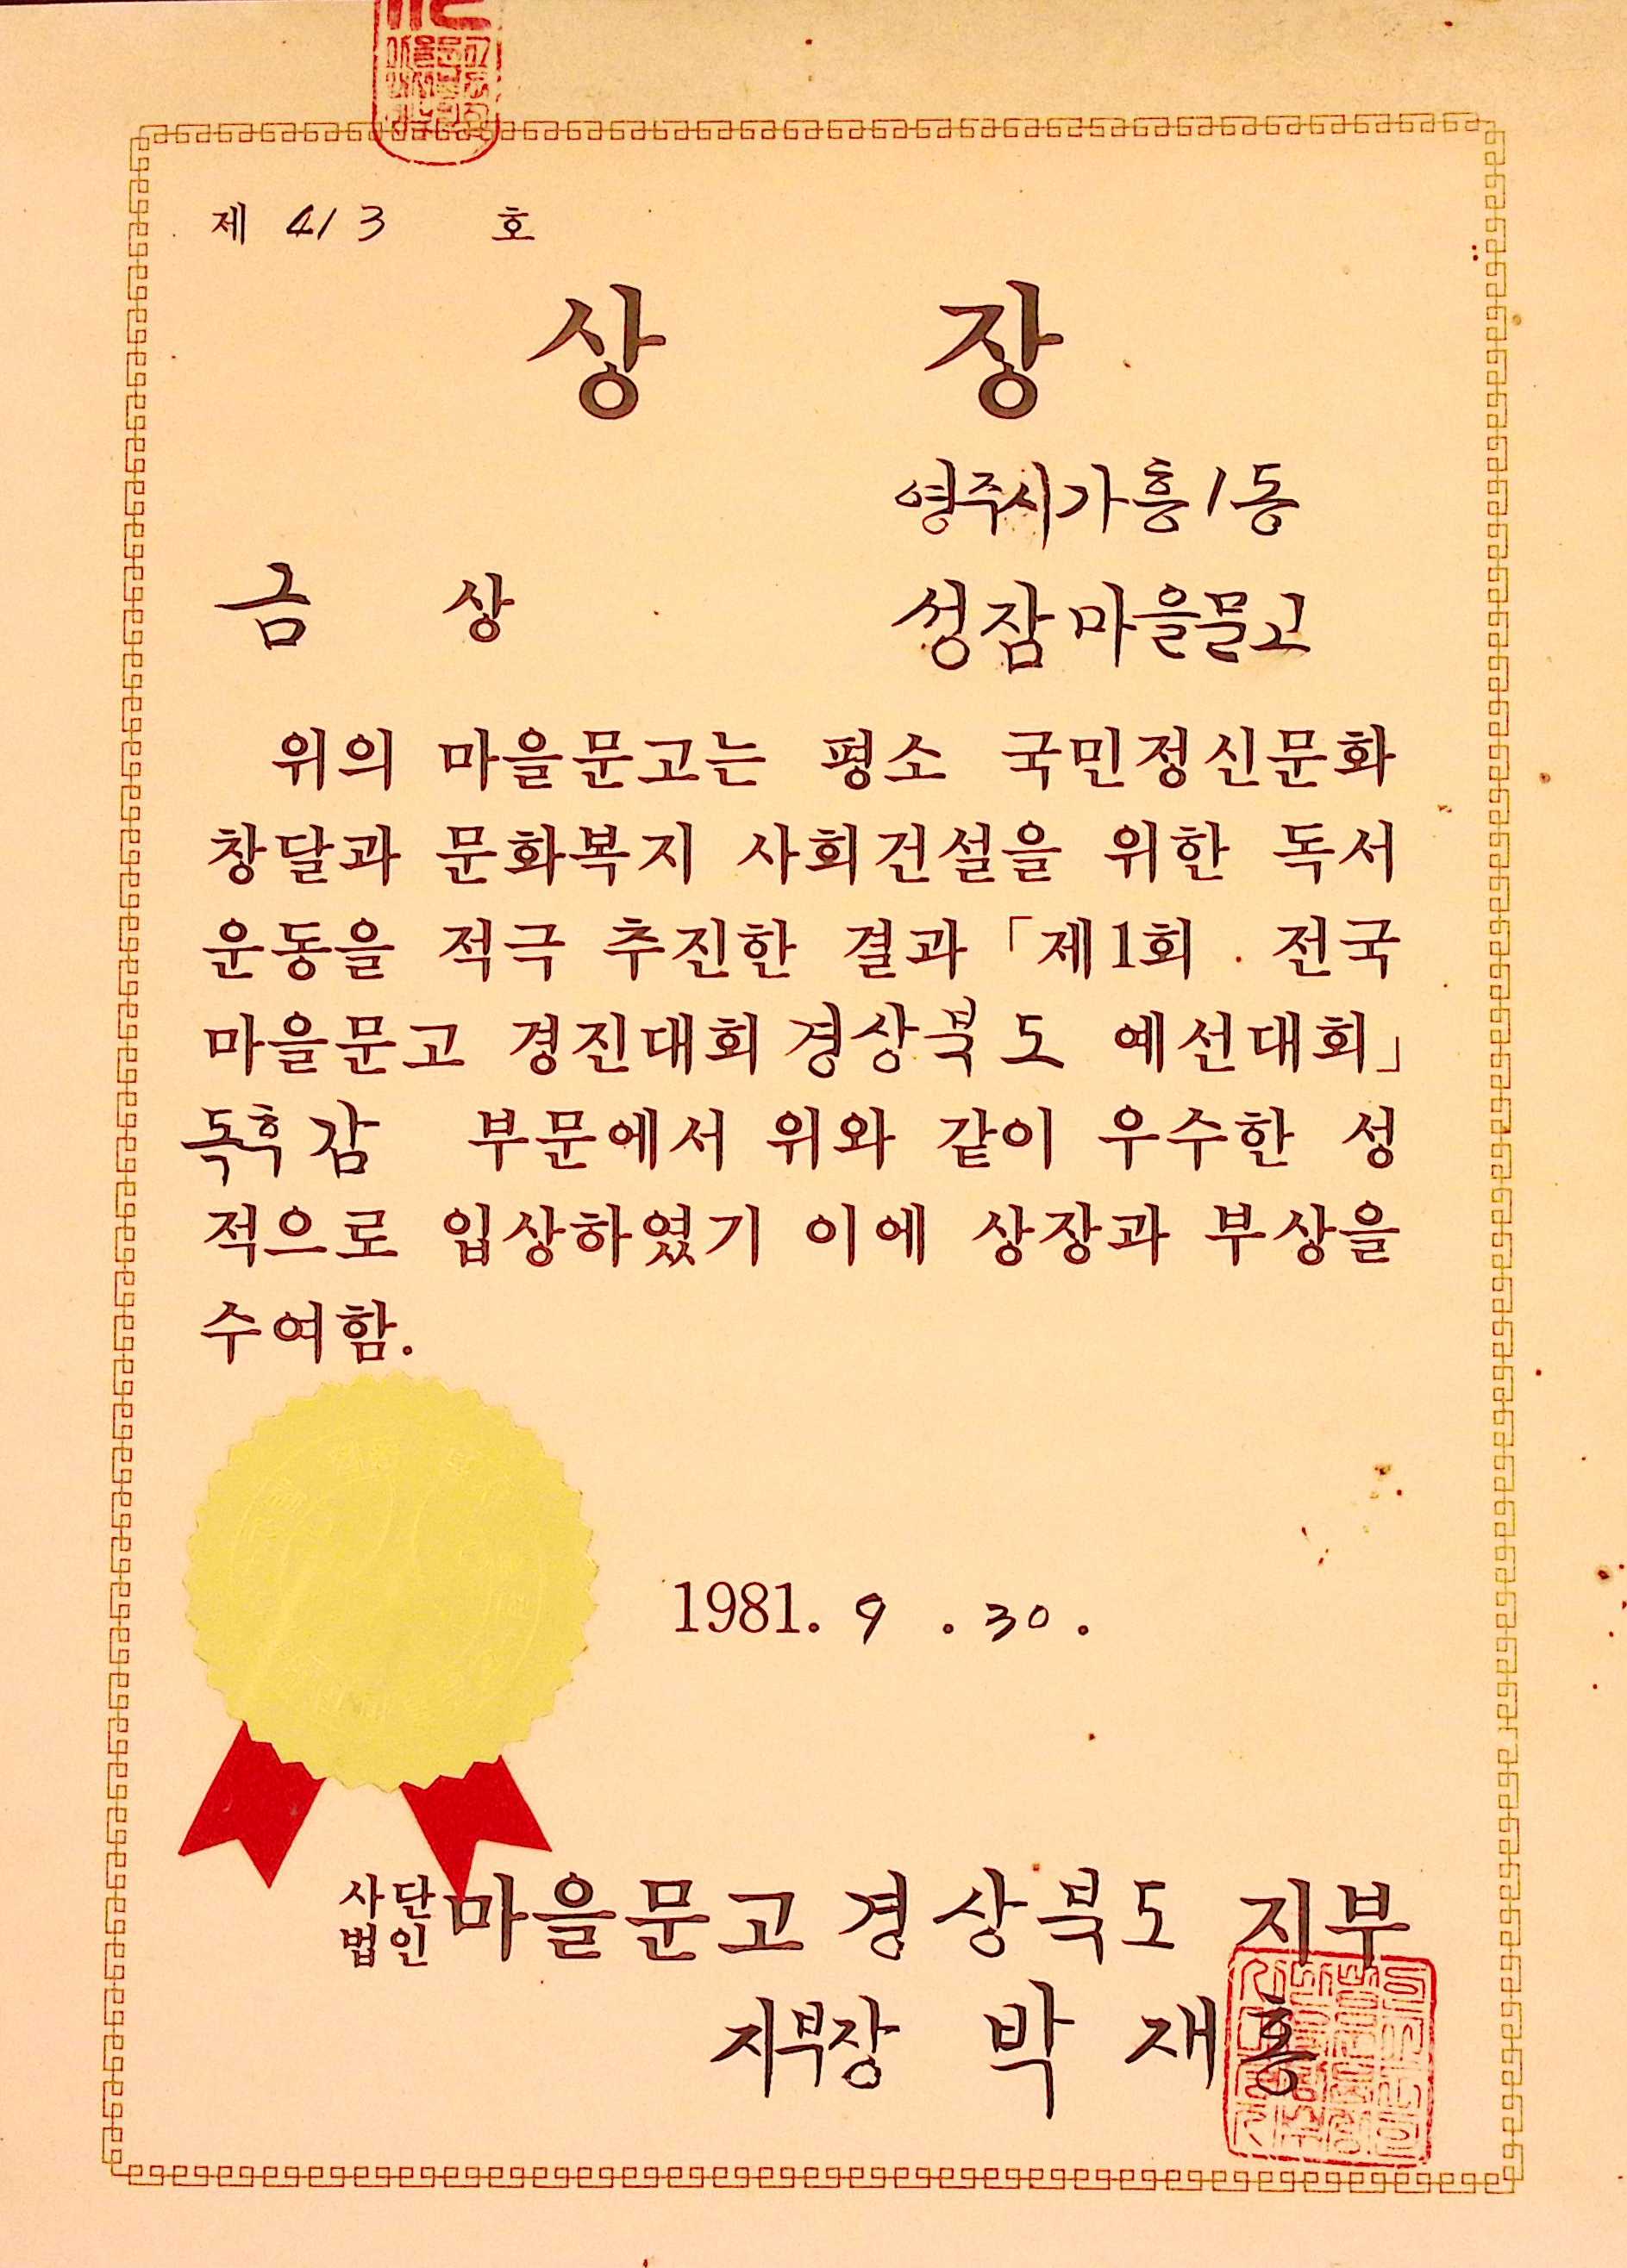 제 413 호
상 장
영주시가흥1동
금 상
성잠마을문고
위의 마을문고는 평소 국민정신문화
창달과 문화복지 사회건설을 위한 독서
운동을 적극 추진한 결과 「제1회 . 전국
마을문고 경진대회 경상북도 예선대회」
독후감 부문에서 위와 같이 우수한 성
적으로 입상하였기 이에 상장과 부상을
수여함.
1981. 9 . 30 .
사단법인 마을문고 경상북도 지부
지부장 박재홍